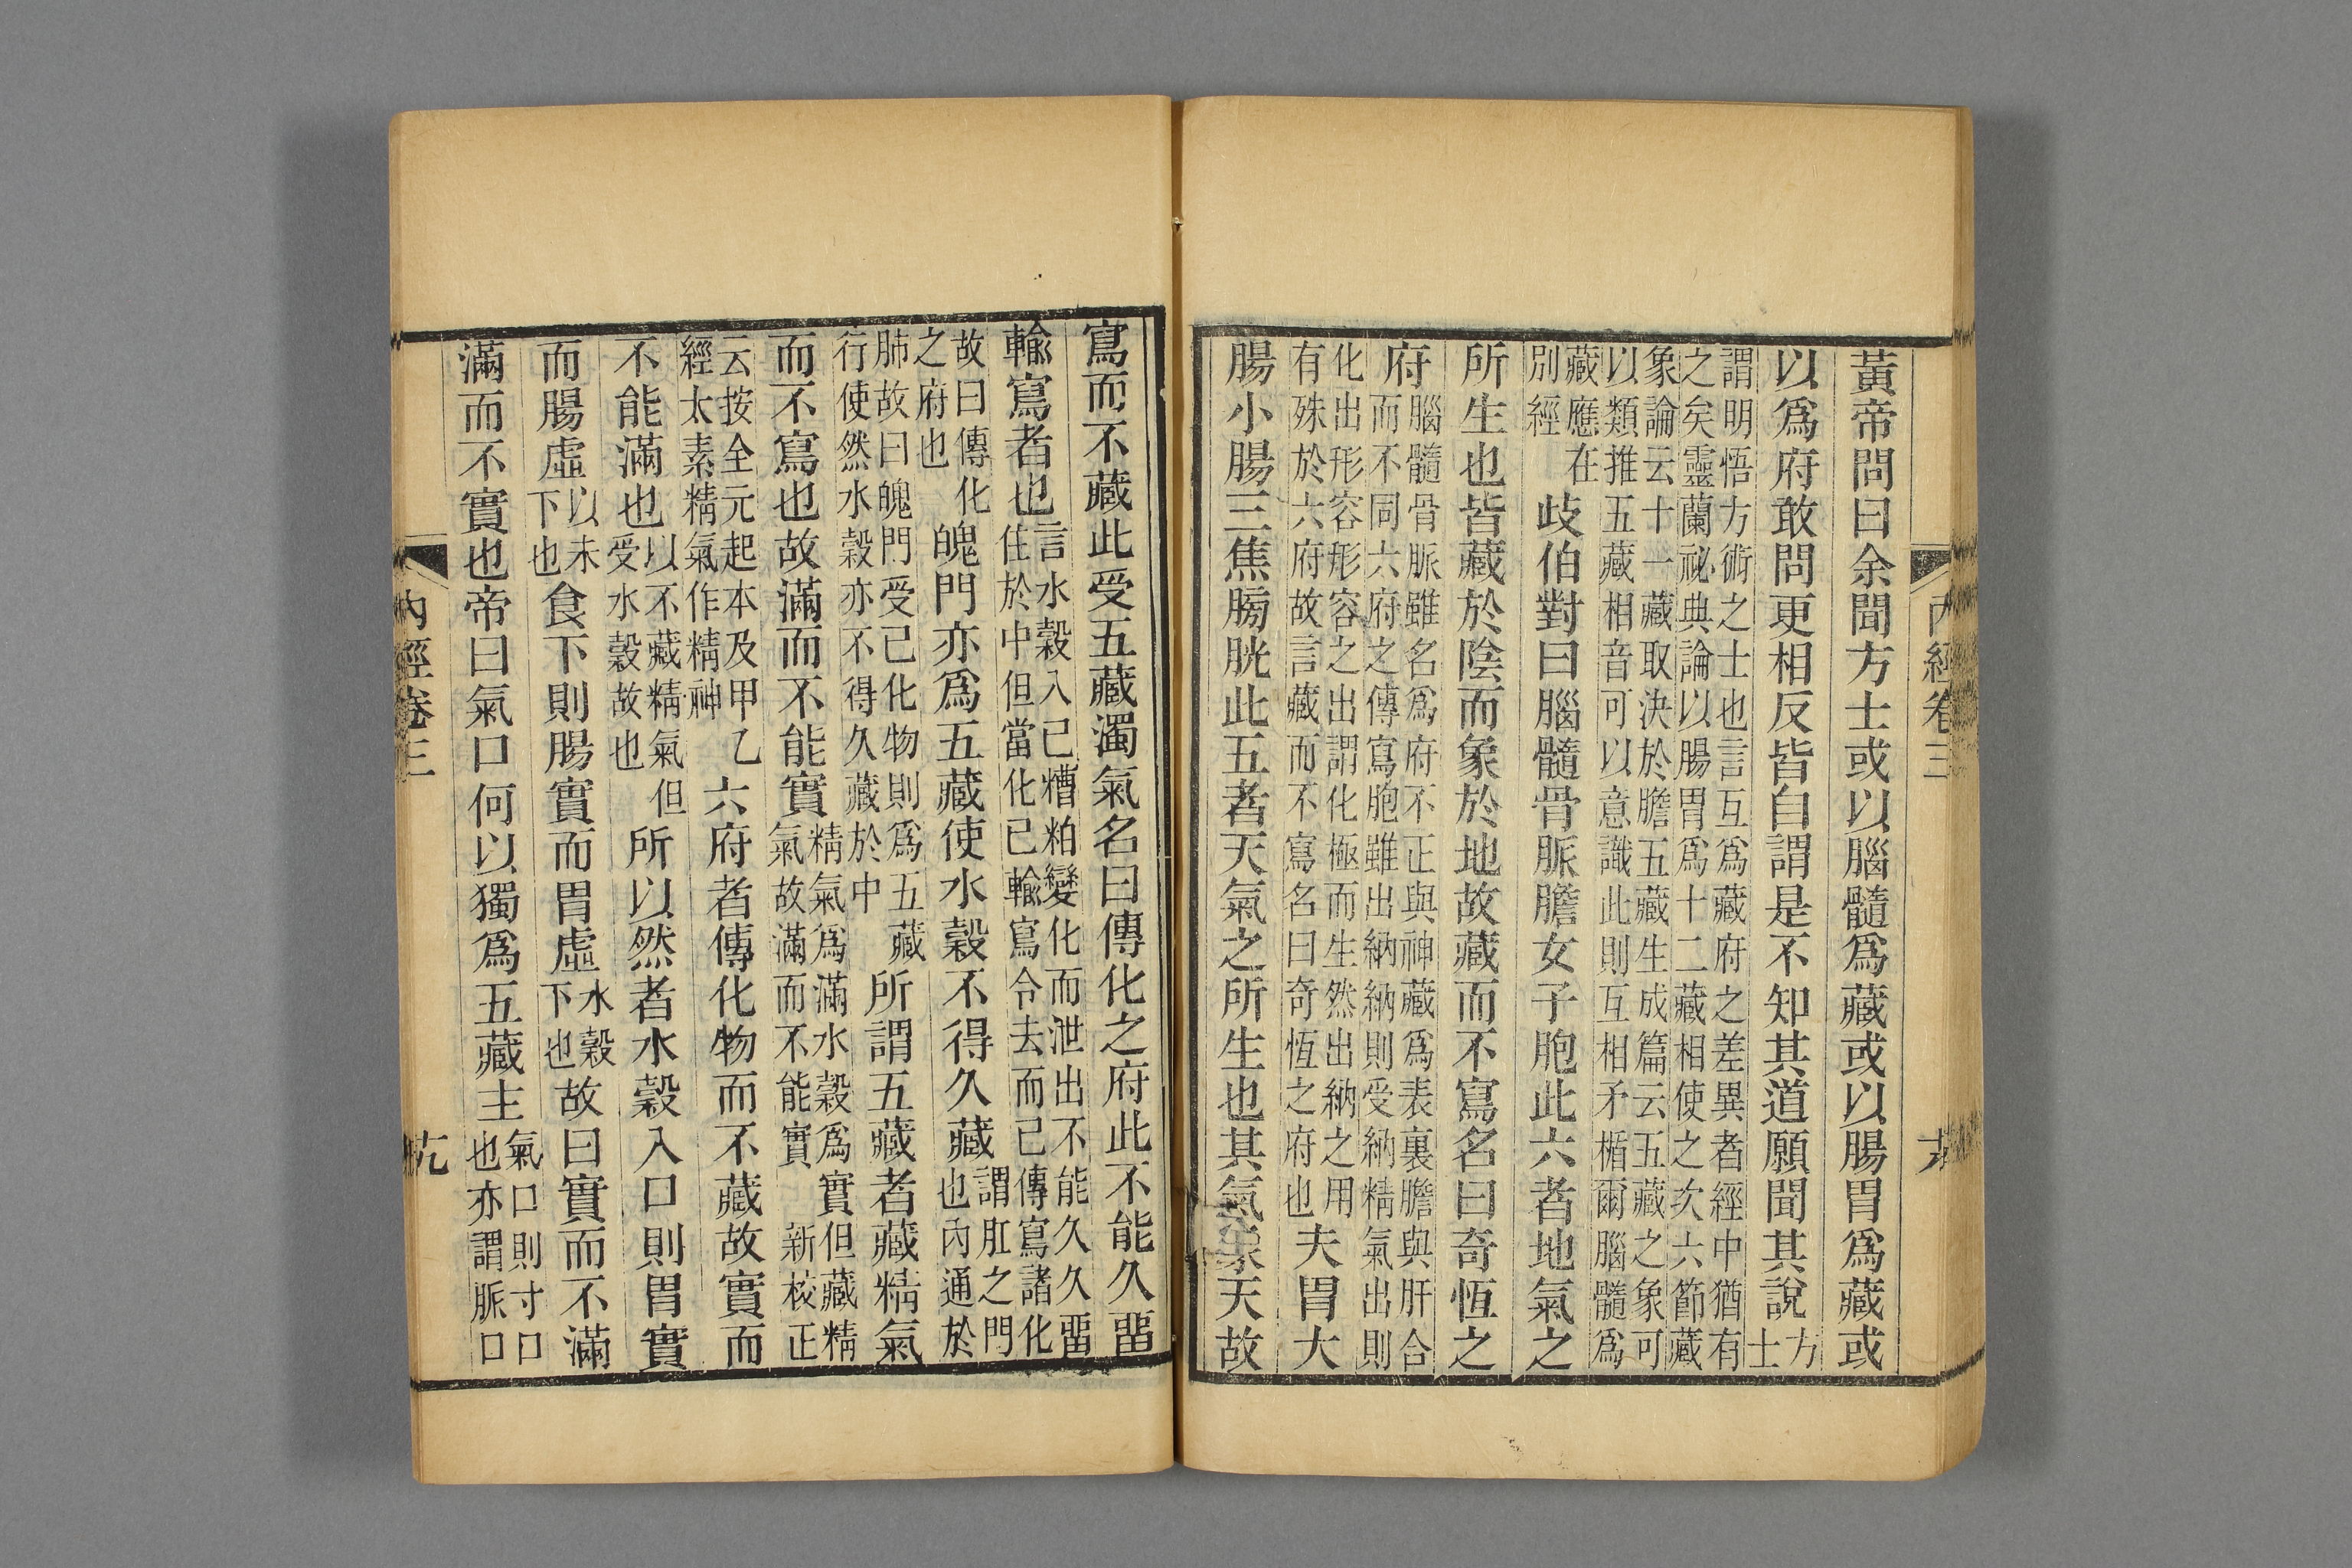 內經卷三
黃帝問曰余聞方士或以腦髓爲藏或以腸胃爲藏或
以爲府敢問更相反皆自謂是不知其道願聞其說方士
謂明悟方術之士也言互爲藏府之差異者經中猶有
之矣靈蘭祕典論以腸胃爲十二藏相使之次六節藏
象論云十一藏取決於膽五藏生成篇云五藏之象可
以類推五藏相音可以意識此則互相矛楯爾腦髓爲
藏應在別經歧伯對曰腦髓骨脈膽女子胞此六者地氣之
所生也皆藏於陰而象於地故藏而不寫名曰奇恆之
府腦髓骨脈雖名爲府不正與神藏爲表裏膽與肝合
而不同六府之傳寫胞雖出納納則受納精氣出則
化出形容形容之出謂化極而生然出納之用
有殊於六府故言藏而不寫名曰奇恆之府也夫胃大
腸小腸三焦膀胱此五者天氣之所生也其氣象天故
寫而不藏此受五藏濁氣名曰傳化之府此不能久畱
輸寫者也言水穀入已糟粕變化而泄出不能久久畱
住於中但當化已輸寫令去而已傳寫諸化
故曰傳化之府也魄門亦爲五藏使水穀不得久藏謂肛之門也內通於
肺故曰魄門受已化物則爲五藏
行使然水穀亦不得久藏於中所謂五藏者藏精氣
而不寫也故滿而不能實精氣爲滿水穀爲實但藏精
氣故滿而不能實新校正
云按全元起本及甲乙
經太素精氣作精神六府者傳化物而不藏故實而
不能滿也以不藏精氣但受水穀故也所以然者水穀入口則胃實
而腸虛以未下也食下則腸實而胃虛水穀下也故曰實而不滿
滿而不實也帝曰氣口何以獨爲五藏主氣口則寸口也亦謂脈口
內經卷三